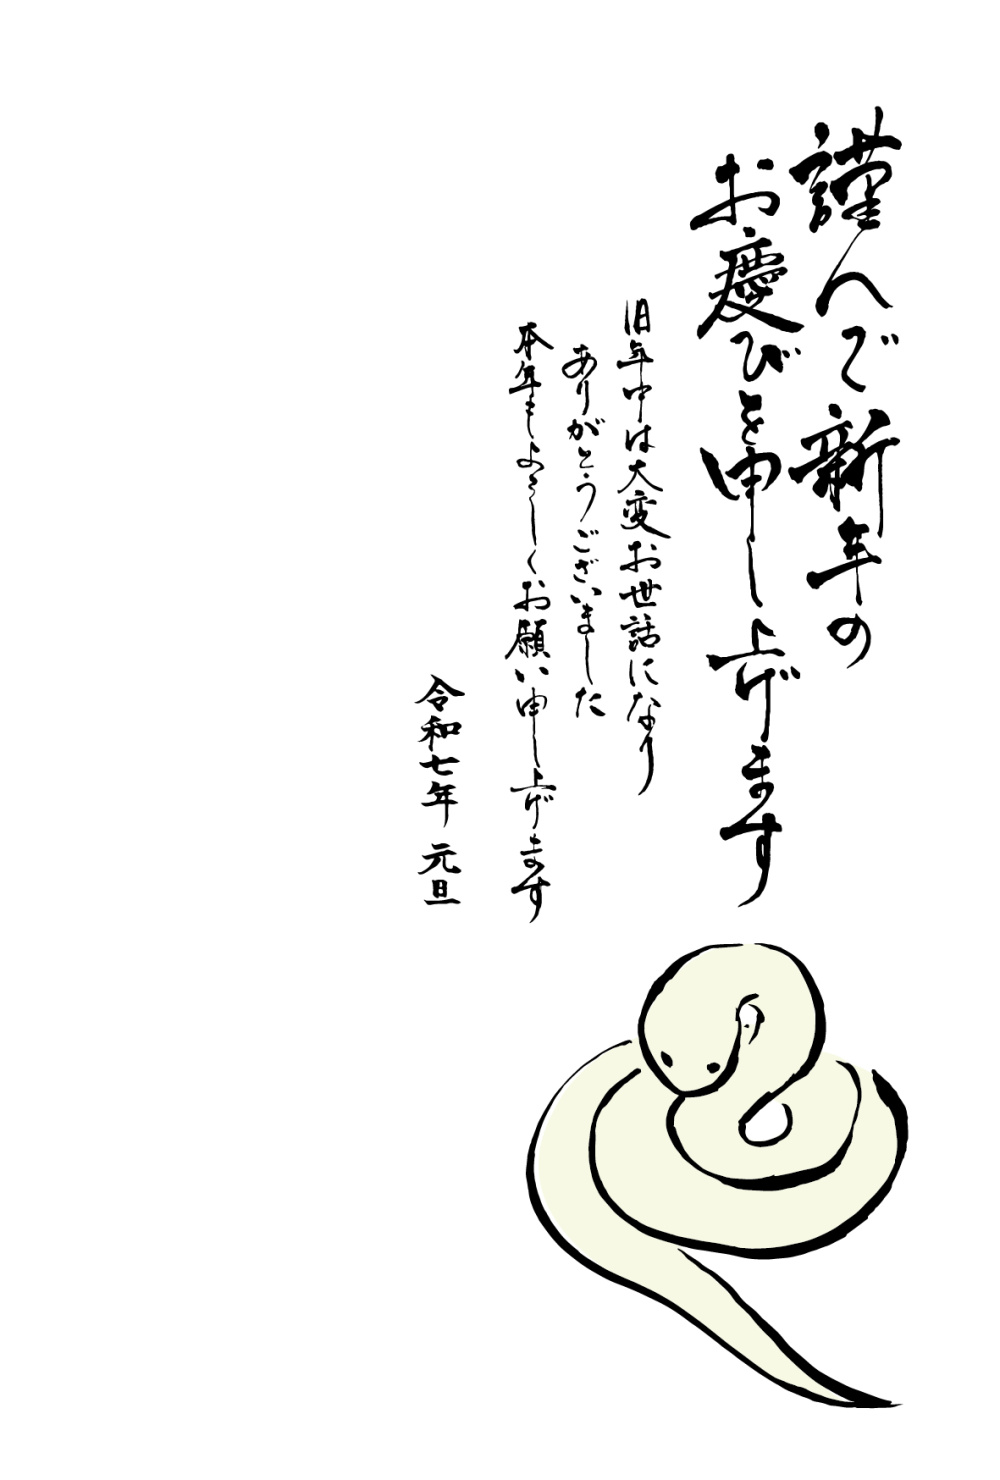 謹んで新年の
お慶びを申し上げます
旧年中は大変お世話になり
ありがとうございました
本年もよろしくお願い申し上げます
令和七年 元旦